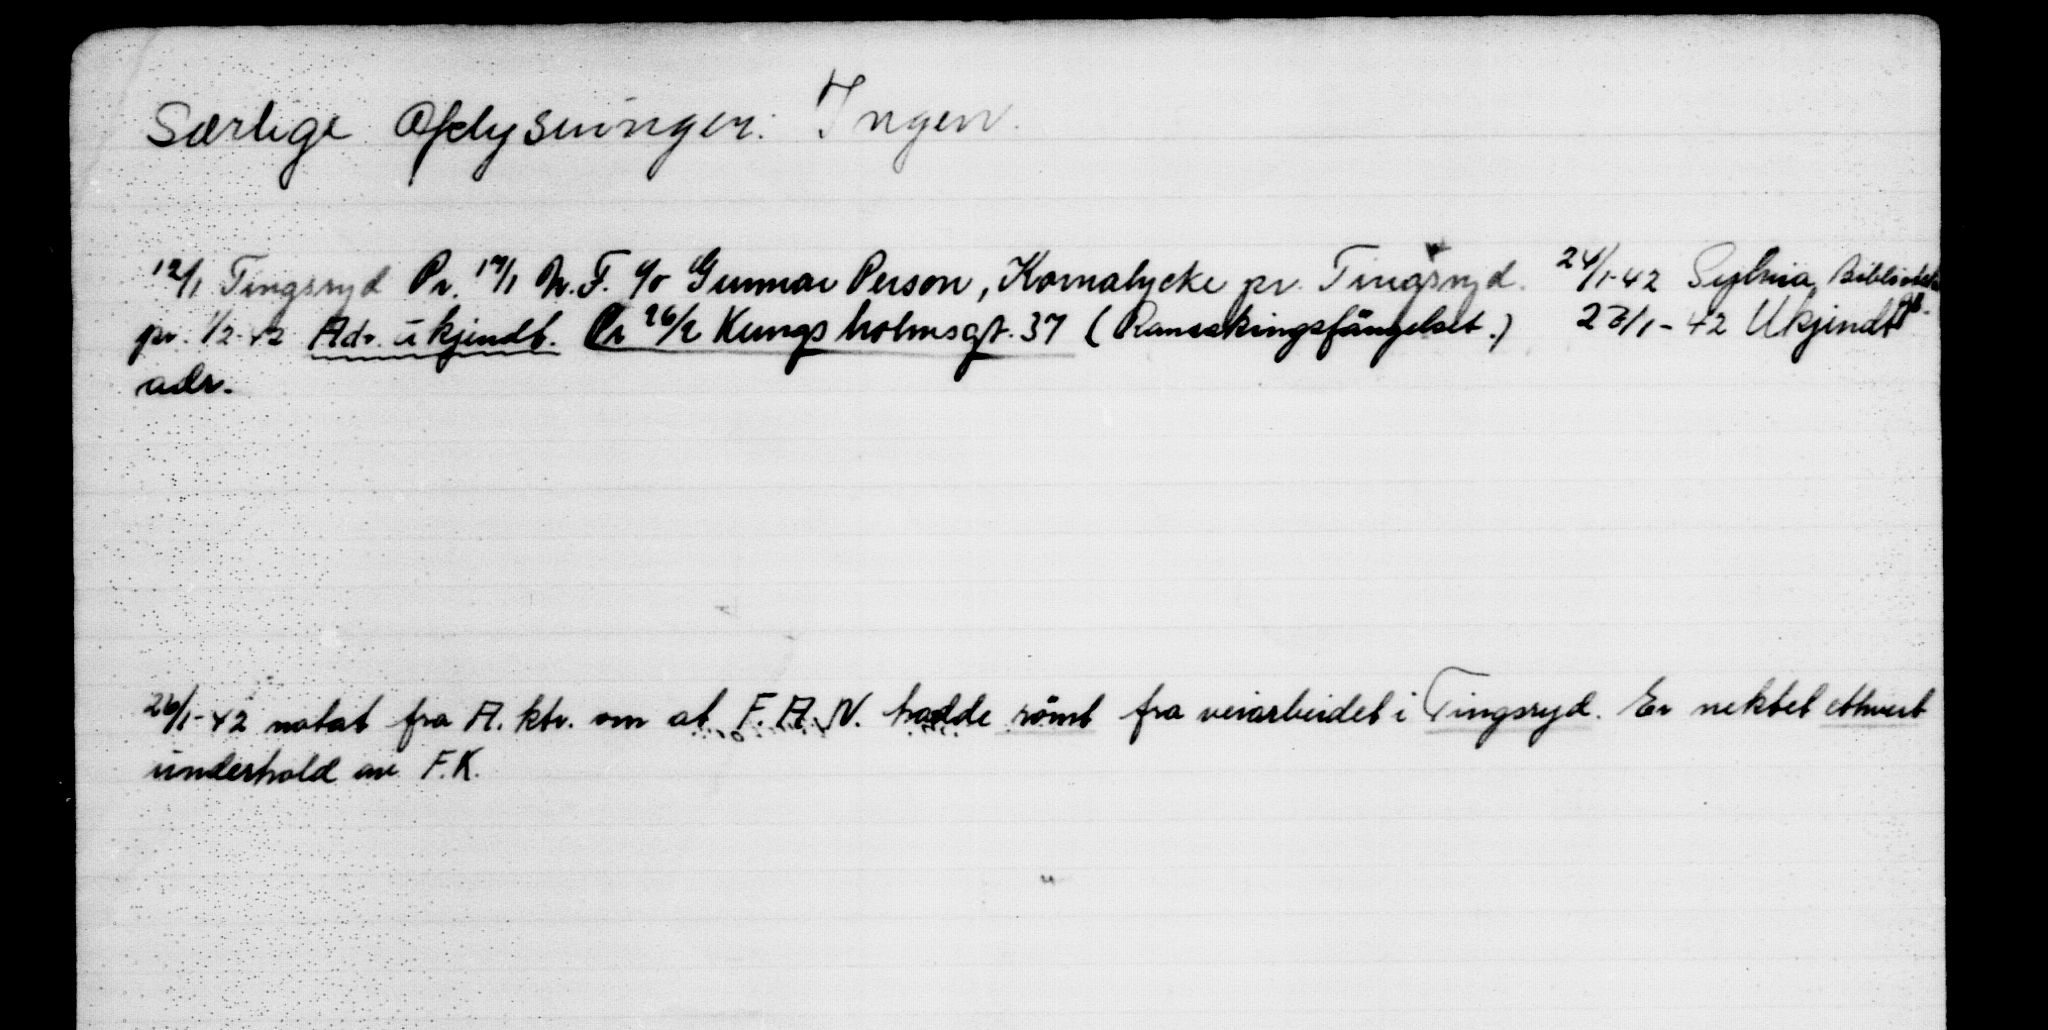 Særlige Oplysninger: Ingen.
12/1 Tingsryd Pr. 17/1 N.F. c/o Gunnar Person, Kornalycke pr. Tingsryd. 24/1-42 Sylvia, Bibliotek
pr. 1/2-42 Adr. ukjendt. Pr 26/2 Kungsholmsgt. 37 (Ransakingsfängelset.) 23/1-42 Ukjendt
adr.
26/1-42 notat fra A. ktr. om at F.A.N. hadde römt fra veiarbeidet i Tingsryd. Er nektet ethvert
underhold av F.K.